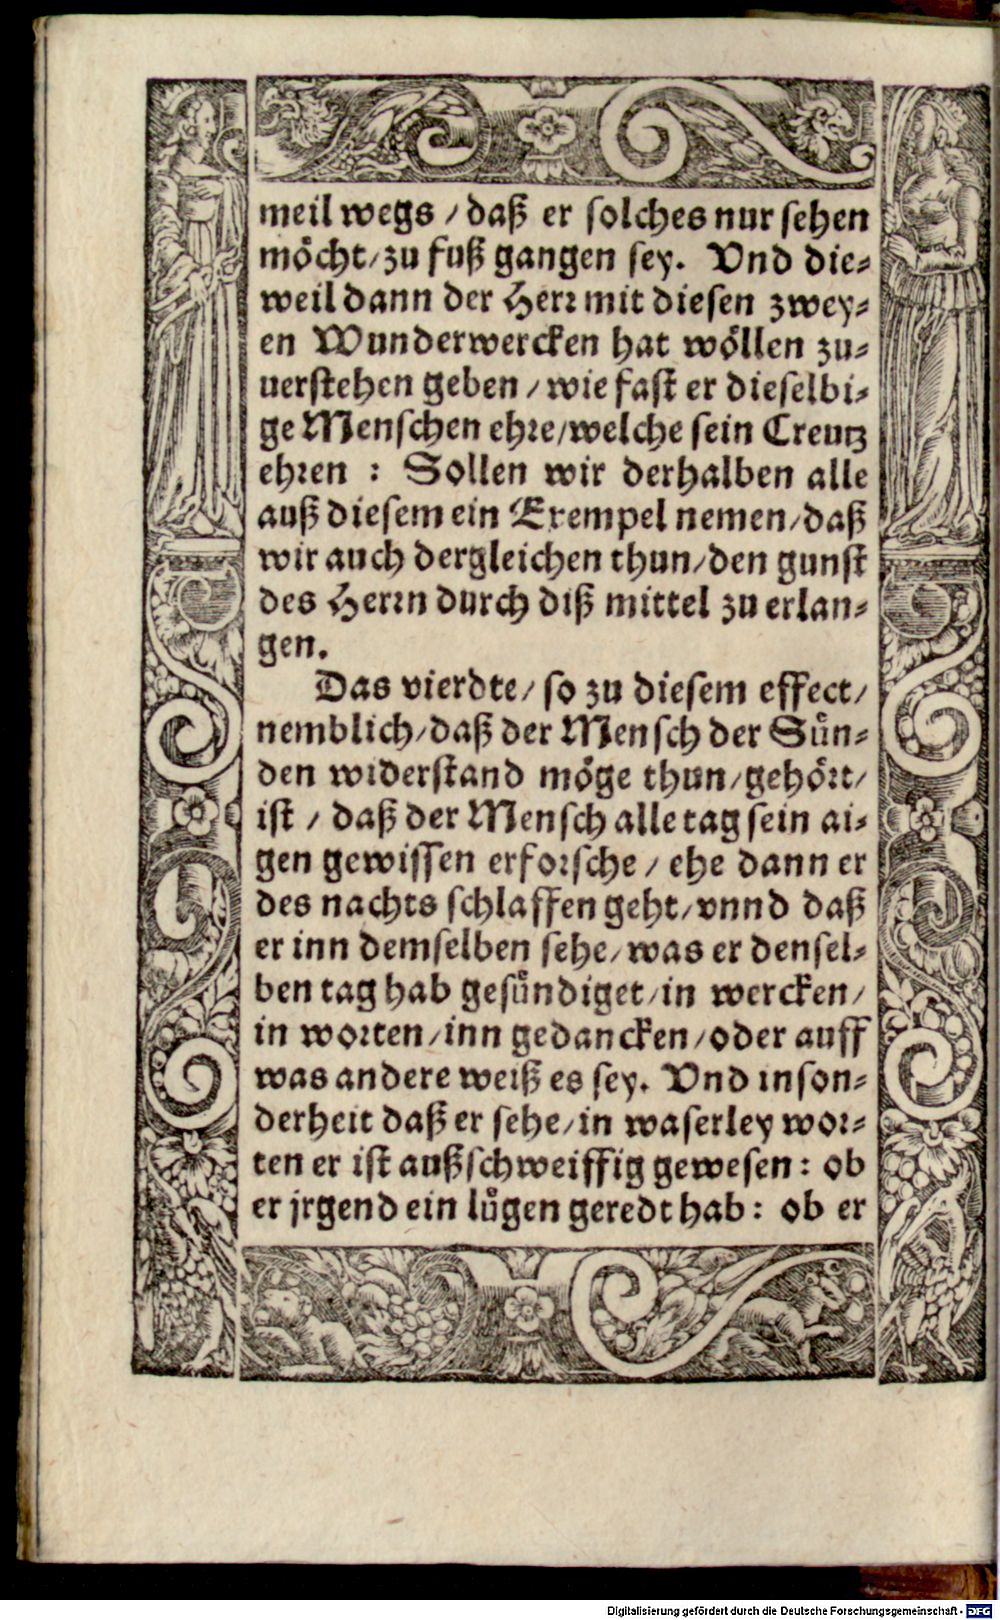 meil wegs / daß er solches nur sehen
möcht / zu fuß gangen sey. Vnd die⸗
weil dann der Herr mit diesen zwey⸗
en Wunderwercken hat wöllen zu⸗
uerstehen geben / wie fast er dieselbi⸗
ge Menschen ehre / welche sein Creutz
ehren : Sollen wir derhalben alle
auß diesem ein Exempel nemen / daß
wir auch dergleichen thun / den gunst
des Herrn durch diß mittel zu erlan⸗
gen.
Das vierdte / so zu diesem effect /
nemblich / daß der Mensch der Sün⸗
den widerstand möge thun / gehört /
ist / daß der Mensch alle tag sein ai⸗
gen gewissen erforsche / ehe dann er
des nachts schlaffen geht / vnnd daß
er inn demselben sehe / was er densel⸗
ben tag hab gesündiget / in wercken /
in worten / inn gedancken / oder auff
was andere weiß es sey. Vnd inson⸗
derheit daß er sehe / in waserley wor⸗
ten er ist außschweiffig gewesen : ob
er jrgend ein lügen geredt hab : ob er
Digitalisierung gefördert durch die Deutsche Forschungsgemeinschaft - DFG